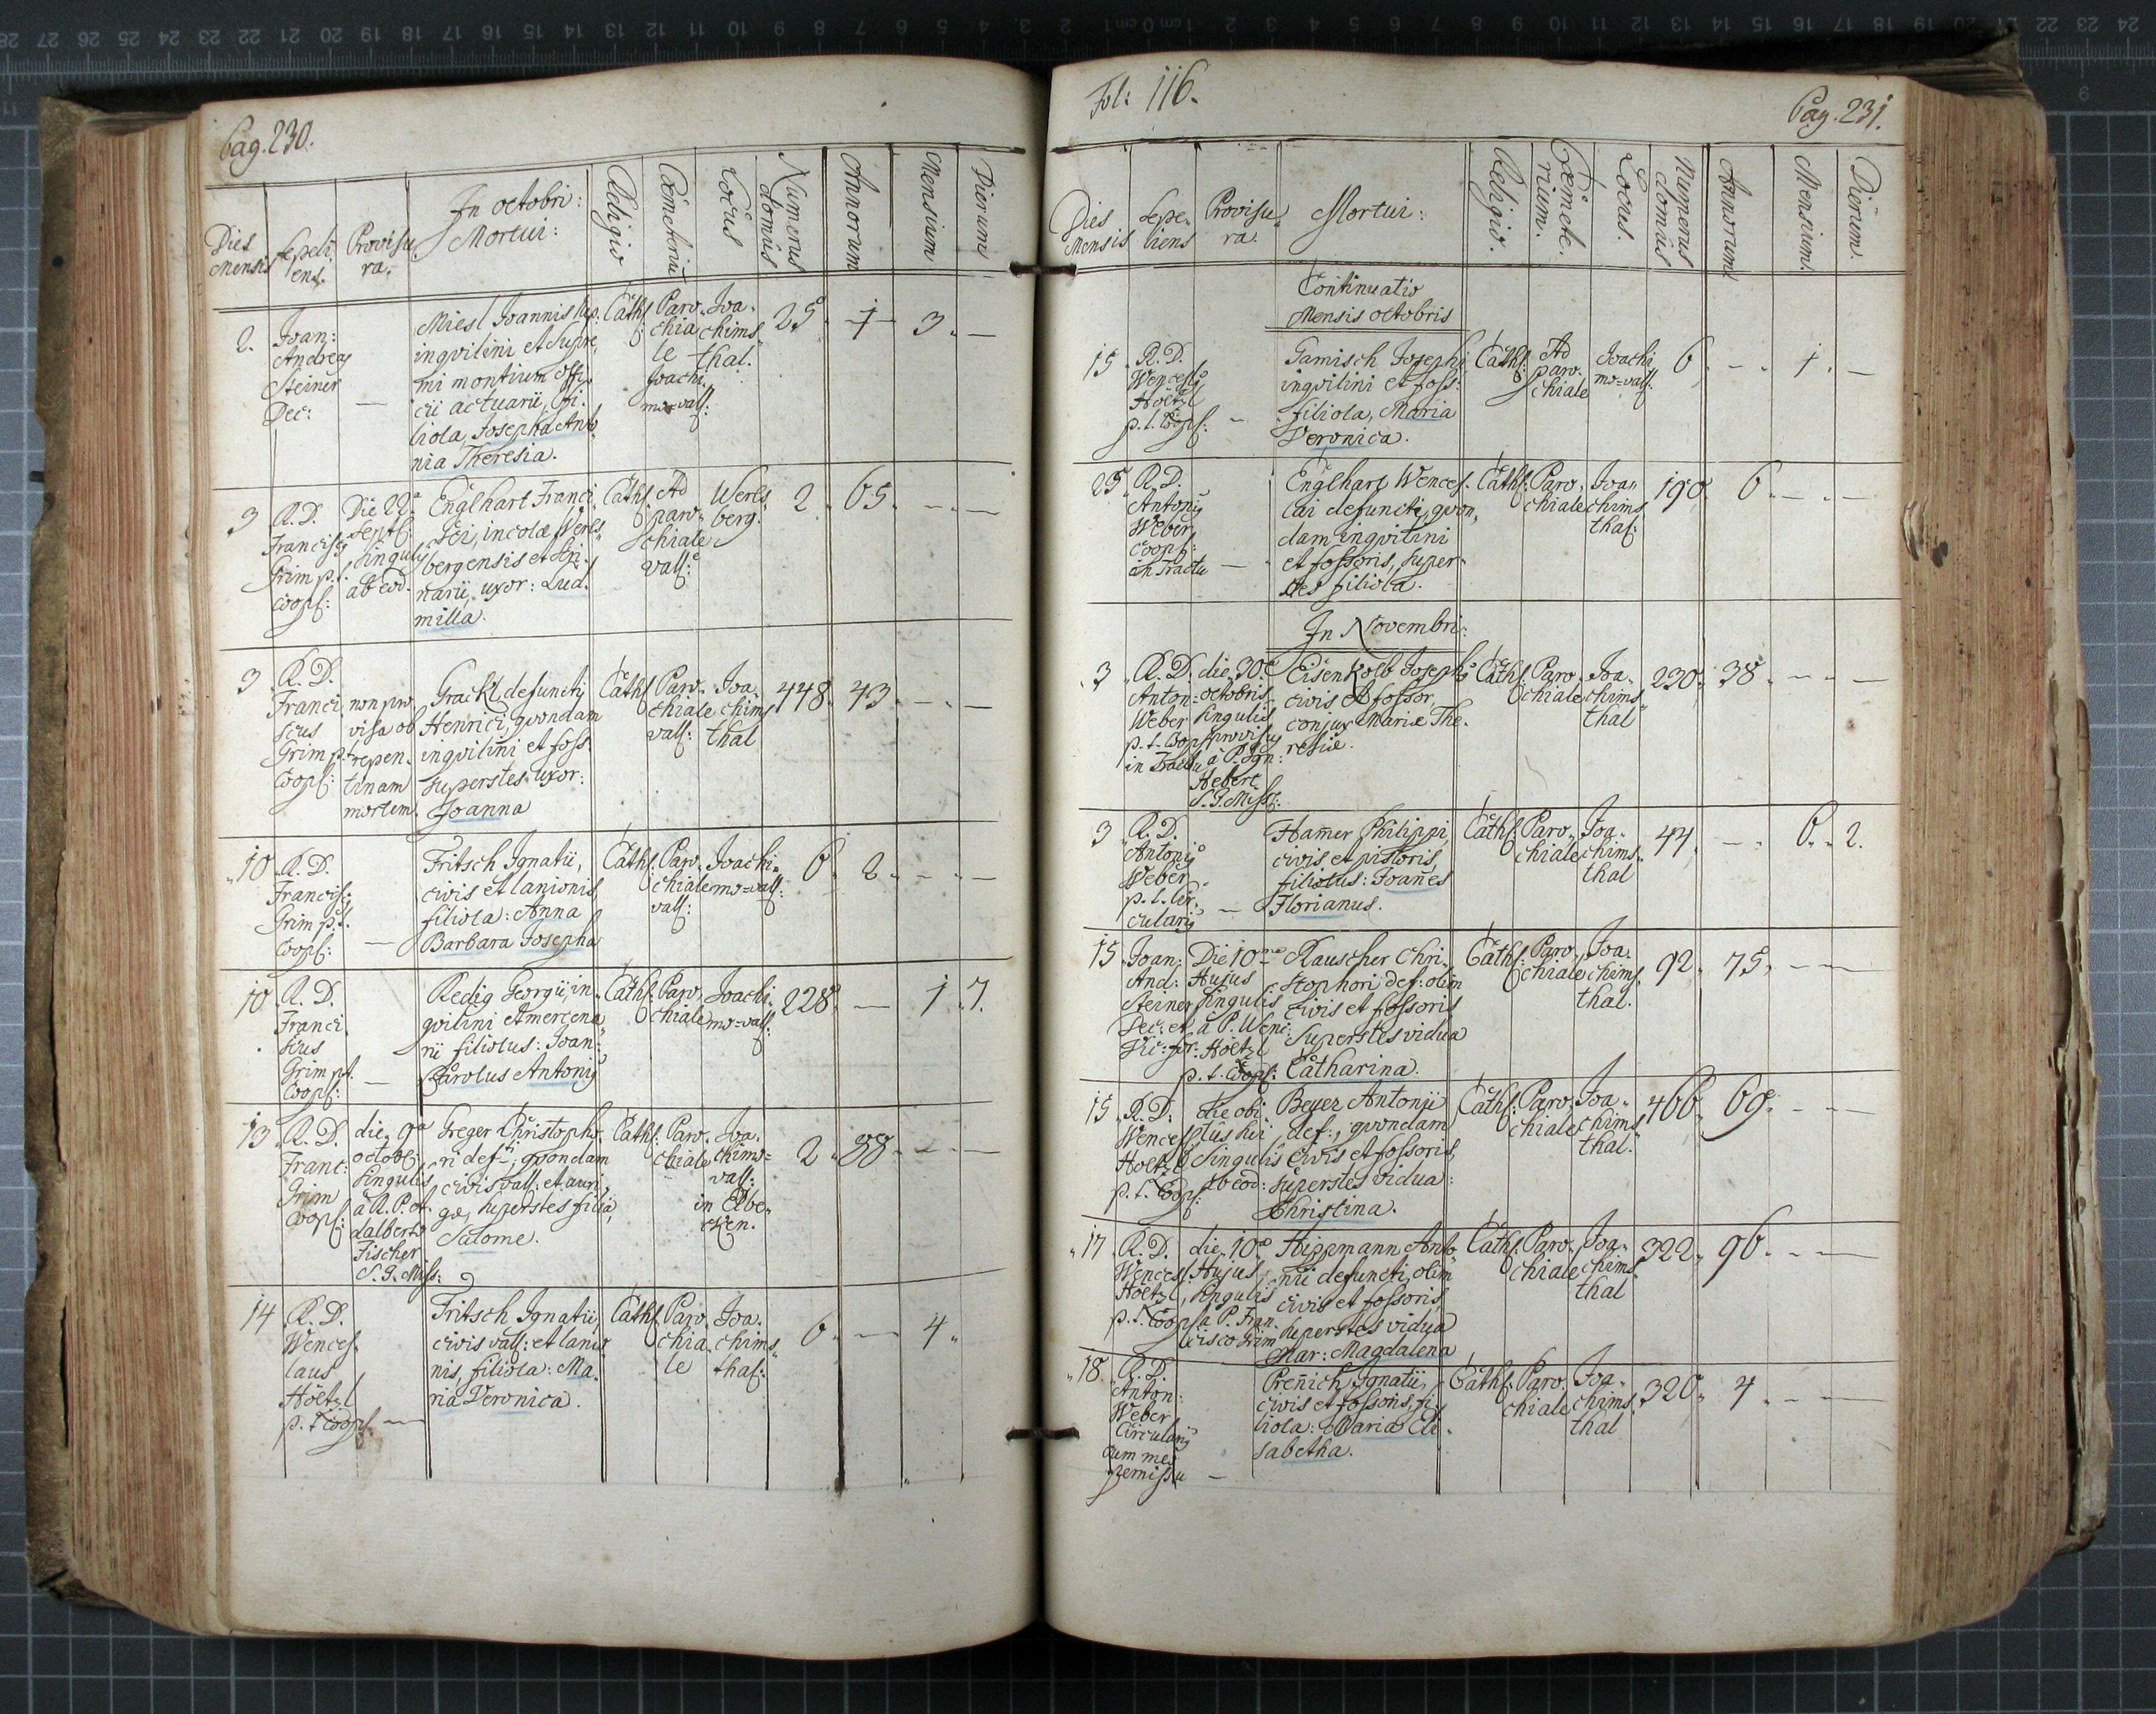 Pag. 230.
Dies Mensis
Sepeli
ens.
Provisu
ra.
In octobri:
Mortui:
Religio
Coemeteriū
Locus
Numerus
domûs
Annorum
Mensium
Dierum
2.
Joan:
Andreas
Steiner
Dec: —
Miesl Joannis Nep.
inqvilini et supre
mi montium offi
cii actuarii, fi
liola, Josepha Anto
nia Theresia.
Cath:
Paro
chia
le
Joachi
mo=vall:
Joa
chims
thal.
25. 1 3. —
3
R. D.
Franciscy
Grim p. t.
Coop:
Die 22a
Septb:
Singulis
ab eod.
Englhart Franci
sci, incolæ Werls
bergensis et Scri
narii, uxor: Lud
milla.
Cath:
Ad
paro
chiale
vall:
Werls
berg.
2. 65. — —
3
R. D.
Franci
scus
Grim p. t.
Coop:
non pro
visa ob
repen
tinam
mortem.
Grackl defuncti
Henrici, qvondam
inqvilini et foss:
superstes uxor:
Joanna
Cath:
Paro
chiale
vall:
Joa
chims
thal
448. 43. — —
10
R. D.
Francisc:
Grim p. t.
Coop: —
Fritsch Ignatii,
civis et lanionis,
filiola: Anna
Barbara Josepha
Cath:
Paro
chiale
vall:
Joachi
mo=vall:
6. 2. — —
10
R. D.
Franci
scus
Grim p. t.
Coop: —
Redig Georgii, in
qvilini et mercena
rii filiolus: Joan:
Carolus Antoniy
Cath:
Paro
chiale
Joachi
mo=vall:
228. — 1. 7.
13
R. D.
Franc:
Grim
Coop:
die 9a
octob:
Singulis
â R. P. A
dalberto
Fischer
S. J. Miss:
Greger Christopho
ri def:, qvondam
civis vall: et auri
gæ, superstes filia,
Salome.
Cath:
Paro
chiale
Joa
chimo=
vall:
in Elbe
cken.
2. 88. — —
14
R. D.
Wences
laus
Höltzl
p. t. Coop: —
Fritsch Ignatii,
civis vall: et lanio
nis, filiola: Ma
ria Veronica.
Cath:
Paro
chia
le
Joa
chims
thal:
6. — 4.
Fol: 116.
Pag. 231.
Dies
Mensis
Sepe
liens
Provisu
ra.
Mortui:
Religio.
Coemete
rium.
Locus.
Numerus
domûs
Annorum
Mensium.
Dierum.
Continuatio
Mensis octobris
15
R. D.
Wencesly
Höltzl
p. t. Coop: —
Gamisch Josephi
inqvilini et foss:
filiola, Maria
Veronica.
Cath:
Ad
paro
chiale
Joachi
mo=vall:
6. — 1. —
25
R. D.
Antoniy
Weber
Coop:
in Tractu —
Englhart Wences
lai defuncti, qvon
dam inqvilini
et fossoris, super
stes filiola.
Cath:
Paro
chiale
Joa
chims
thal:
190. 6. — —
In Novembri:
3
R. D.
Anton:
Weber
p. t. Coop:
in Tractu
die 30.
octobris
Singulis
provisy
â P. Ign:
Hebert
S. J. Miss:
Eisenkolb Josephy
civis et fossor
conjux Mariæ The
resiæ.
Cath:
Paro
chiale
Joa
chims
thal
230. 38. — —
3
R. D.
Antoniy
Weber
p. t. Cir
culariy —
Hamer Philippi,
civis et pistoris,
filiolus: Joañes
Florianus.
Cath:
Paro
chiale
Joa
chims
thal
44. — 6. 2.
15
Joan:
And:
Steiner
Dec: et
Vic: for:
Die 10
Hujus
Singulis
â P. Wenc:
Höltzl
p. t. Coop:
Rauscher Chri
stophori def: olim
civis et fossoris
Superstes vidua
Catharina.
Cath:
Paro
chiale
Joa
chims
thal.
92. 75. — —
15
R. D.
Wencesl
Höltzl
p. t. Coop:
die obi
tûs sui
Singulis
ab eod:
Beyer Antonji
def:, qvondam
civis et fossoris,
Superstes vidua:
Christina.
Cath:
Paro
chiale
Joa
chims
thal.
466. 69. — —
17
R. D.
Wencesl.
Höltzl,
p. t. Coop:
die 10
Hujus
Singulis
â P. Fran
cisco Grim
Hippmann Anto
nii defuncti, olim
civis et fossoris,
superstes vidua
Mar: Magdalena
Cath:
Paro
chiale
Joa
chims
thal
322. 96. — —
18
R. D.
Anton:
Weber
Circulariy
cum meo
permissu —
Preñich Ignatii,
civis et fossoris, fi
liola: Maria Eli
sabetha.
Cath:
Paro
chiale
Joa
chims
thal
320. 4. — —